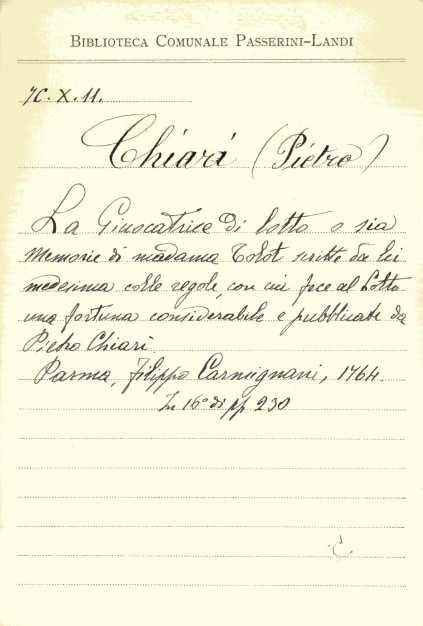 BIBLIOTECA COMUNALE PASSERINI-LANDI
7C. X. 11.
Chiari (Pietro)
La Giuocatrice di lotto o sia
Memorie di madama Tolot scritte da lei
medesima colle regole, con cui fece al Lotto
una fortuna considerabile e pubblicate da
Pietro Chiari
Parma, Filippo Carmignani, 1764.
In 16° di pp 230
C.